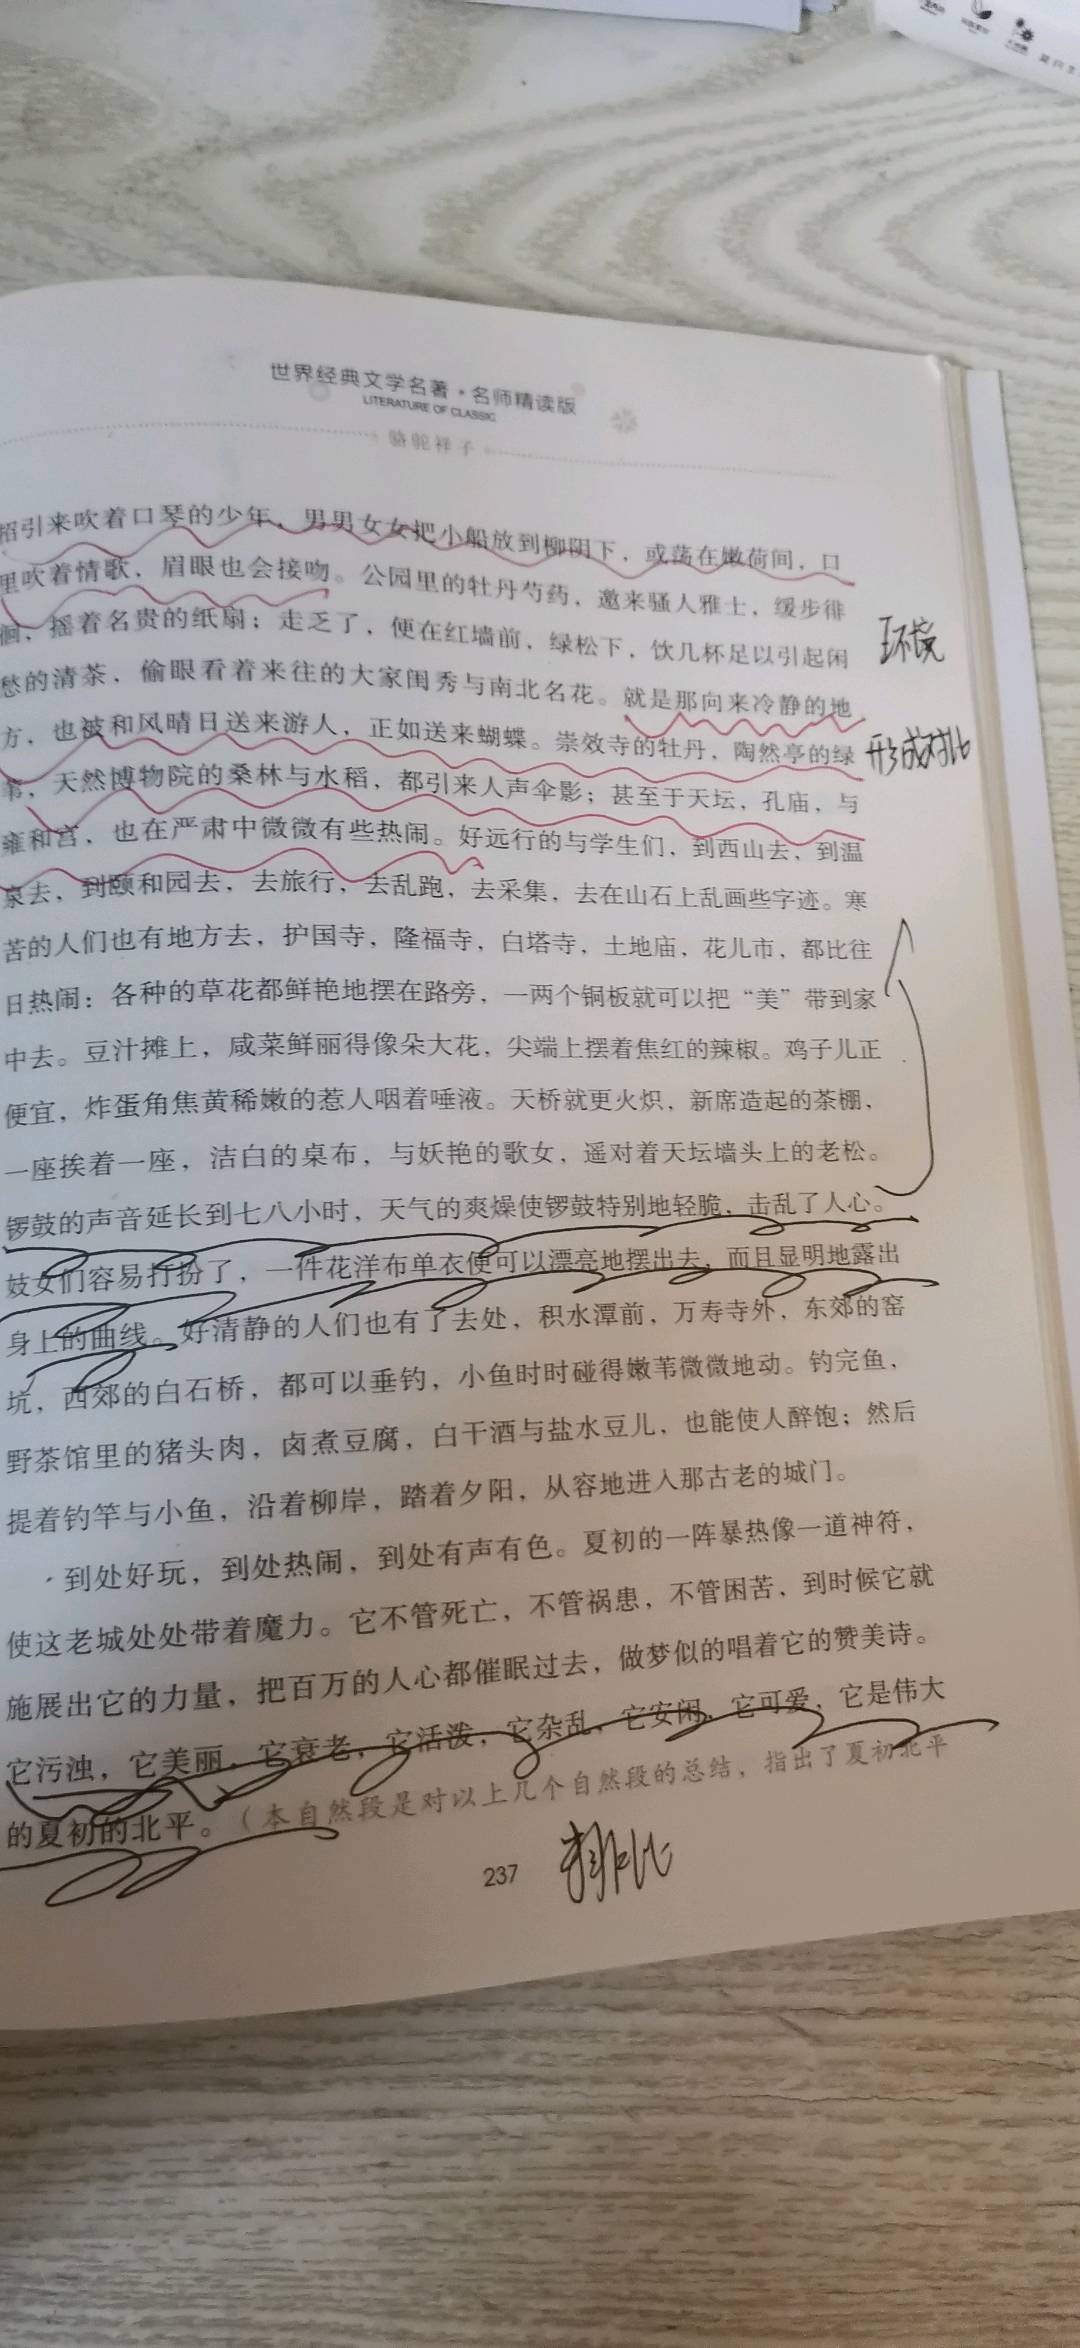 世界经典文学名著·名师精读版
LITERATURE OF CLASSIC
骆驼祥子
招引来吹着口琴的少年，男男女女把小船放到柳阴下，或荡在嫩荷间，口
里吹着情歌，眉眼也会接吻。公园里的牡丹芍药，邀来骚人雅士，缓步徘
徊，摇着名贵的纸扇；走乏了，便在红墙前，绿松下，饮几杯足以引起闲
环境
愁的清茶，偷眼看着来往的大家闺秀与南北名花。就是那向来冷静的地
方，也被和风晴日送来游人，正如送来蝴蝶。崇效寺的牡丹，陶然亭的绿
形成对比
苇，天然博物院的桑林与水稻，都引来人声伞影；甚至于天坛，孔庙，与
雍和宫，也在严肃中微微有些热闹。好远行的与学生们，到西山去，到温
泉去，到颐和园去，去旅行，去乱跑，去采集，去在山石上乱画些字迹。寒
苦的人们也有地方去，护国寺，隆福寺，白塔寺，土地庙，花儿市，都比往
日热闹：各种的草花都鲜艳地摆在路旁，一两个铜板就可以把“美”带到家
中去。豆汁摊上，咸菜鲜丽得像朵大花，尖端上摆着焦红的辣椒。鸡子儿正
便宜，炸蛋角焦黄稀嫩的惹人咽着唾液。天桥就更火炽，新席造起的茶棚，
一座挨着一座，洁白的桌布，与妖艳的歌女，遥对着天坛墙头上的老松。
锣鼓的声音延长到七八小时，天气的爽燥使锣鼓特别地轻脆，击乱了人心。
妓女们容易打扮了，一件花洋布单衣便可以漂亮地摆出去，而且显明地露出
身上的曲线。好清静的人们也有了去处，积水潭前，万寿寺外，东郊的窑
坑，西郊的白石桥，都可以垂钓，小鱼时时碰得嫩苇微微地动。钓完鱼，
野茶馆里的猪头肉，卤煮豆腐，白干酒与盐水豆儿，也能使人醉饱；然后
提着钓竿与小鱼，沿着柳岸，踏着夕阳，从容地进入那古老的城门。
到处好玩，到处热闹，到处有声有色。夏初的一阵暴热像一道神符，
使这老城处处带着魔力。它不管死亡，不管祸患，不管困苦，到时候它就
施展出它的力量，把百万的人心都催眠过去，做梦似的唱着它的赞美诗。
它污浊，它美丽，它衰老，它活泼，它杂乱，它安闲，它可爱，它是伟大
的夏初的北平。（本自然段是对以上几个自然段的总结，指出了夏初北平
237
排比